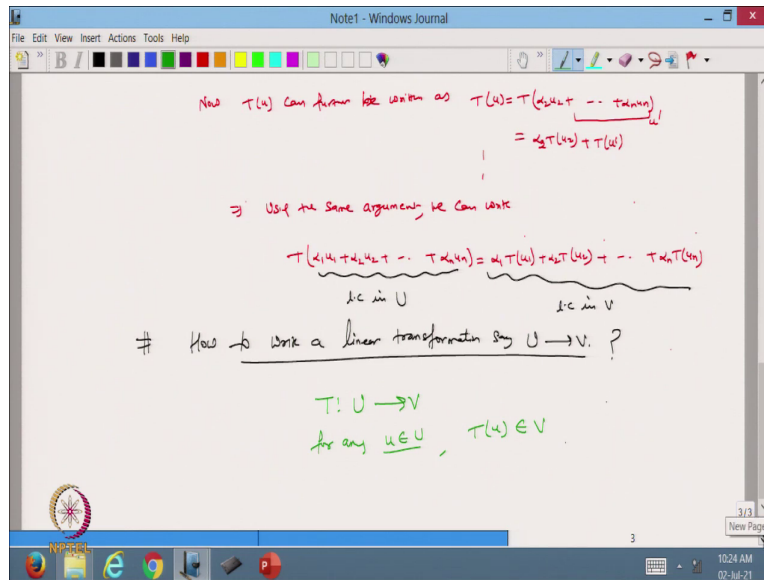 Note1 - Windows Journal
File Edit View Insert Actions Tools Help
B I
Now T(u) can further be written as T(u) = T(α₂u₂ + -- + αₙuₙ)
u'
= α₂T(u₂) + T(u')
⇒ Use the same argument, we can write
T(α₁u₁ + α₂u₂ + -- + αₙuₙ) = α₁T(u₁) + α₂T(u₂) + -- + αₙT(uₙ)
l.c in U l.c in V
# How to write a linear transformation say U → V. ?
T: U → V
for any u ∈ U, T(u) ∈ V
3/3
New Page
3
NPTEL
10:24 AM
02-Jul-21